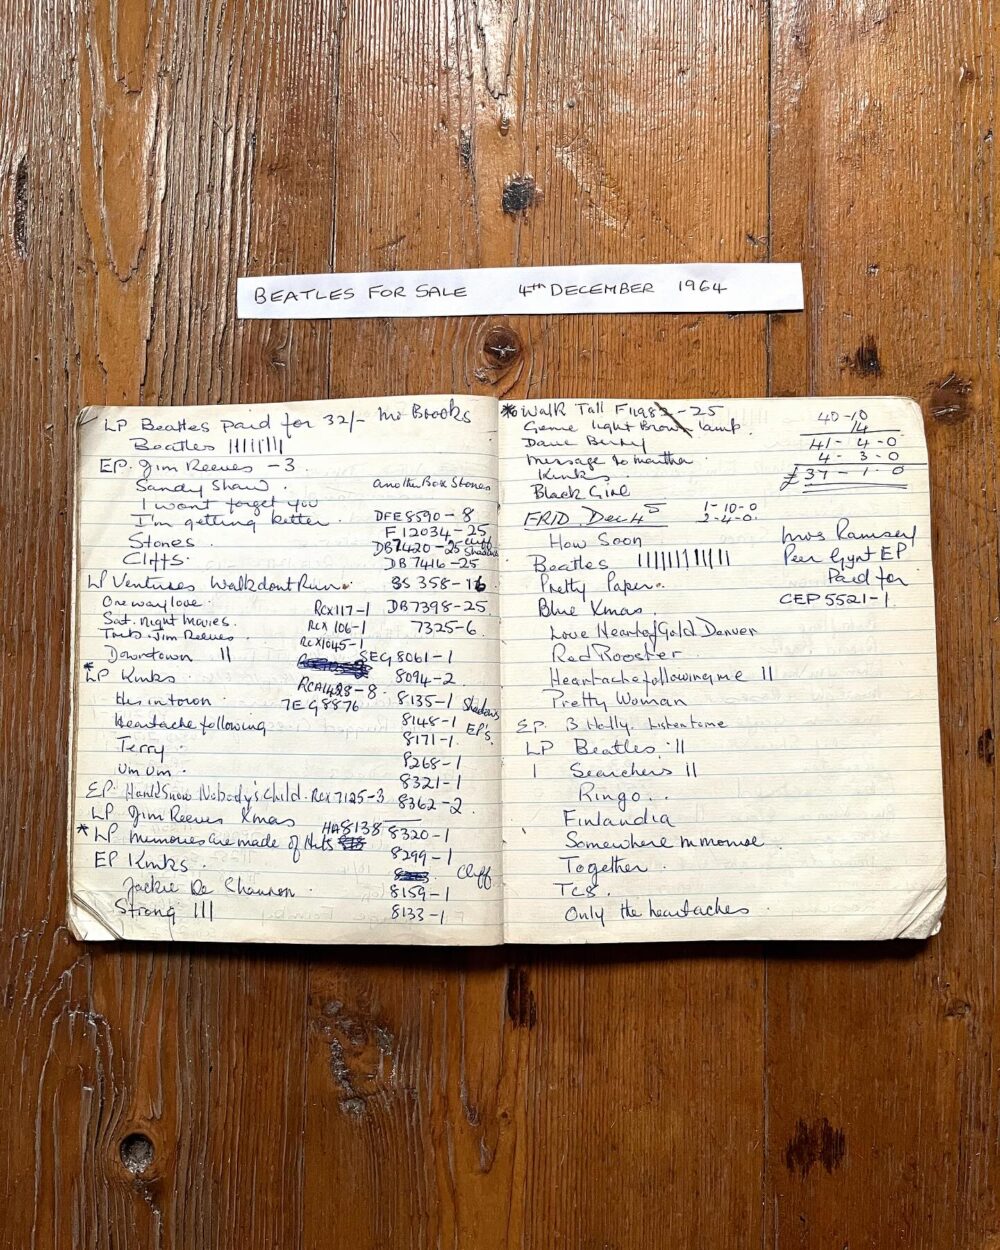 BEATLES FOR SALE 4th DECEMBER 1964
LP Beatles paid for 32/- Mr Brooks
Beatles ||||||||
EP. Jim Reeves - 3.
Sandy Shaw. another Box Stones
I wont forget you
I'm getting better. DFE 8590 - 8
Stones. F 12034 - 25
Cliffs. DB 7420 - 25 Cliff Shadows
DB 7416 - 25
LP Ventures Walk dont Run. BS 358 - 16
One way love. RCX 117 - 1 DB 7398 - 25
Sat. night Movies. RCX 106 - 1 7325 - 6
Trib. Jim Reeves. RCX 1045 - 1
Downtown || SEG 8061 - 1
*LP Kinks. 8094 - 2
RCA 1428 - 8
Hes in town 7EG 8876 8135 - 1 Shadows
Heartache following 8148 - 1 EP's
Terry. 8171 - 1
Um Um. 8268 - 1
8321 - 1
EP. Hank Snow Nobody's Child. RCX 7125 - 3 8362 - 2
LP Jim Reeves Xmas
*LP Memories are made of Hits HA 8138 8320 - 1
EP Kinks. 8299 - 1
Cliff
Jackie De Shannon. 8159 - 1
Strong ||| 8133 - 1
* Walk Tall F 11982 - 25
Genie light Brown lamp.
Dave Berry
Message to Martha.
Kinks.
Black Girl
40-10
14
41 - 4 - 0
4 - 3 - 0
£37 - 1 - 0
FRID Dec 4 1-10-0
2-4-0
How Soon
Beatles ||||||||||||
Pretty Paper.
Blue Xmas.
Mrs Ramsey
Peer Gynt EP
Paid for
CEP 5521 - 1
Love Heart of Gold Denver
Red Rooster
Heartache following me ||
Pretty Woman
EP. B Holly. Listen to me
LP Beatles ||
1 Searchers ||
Ringo..
Finlandia
Somewhere
Together.
TCS.
Only the heartaches